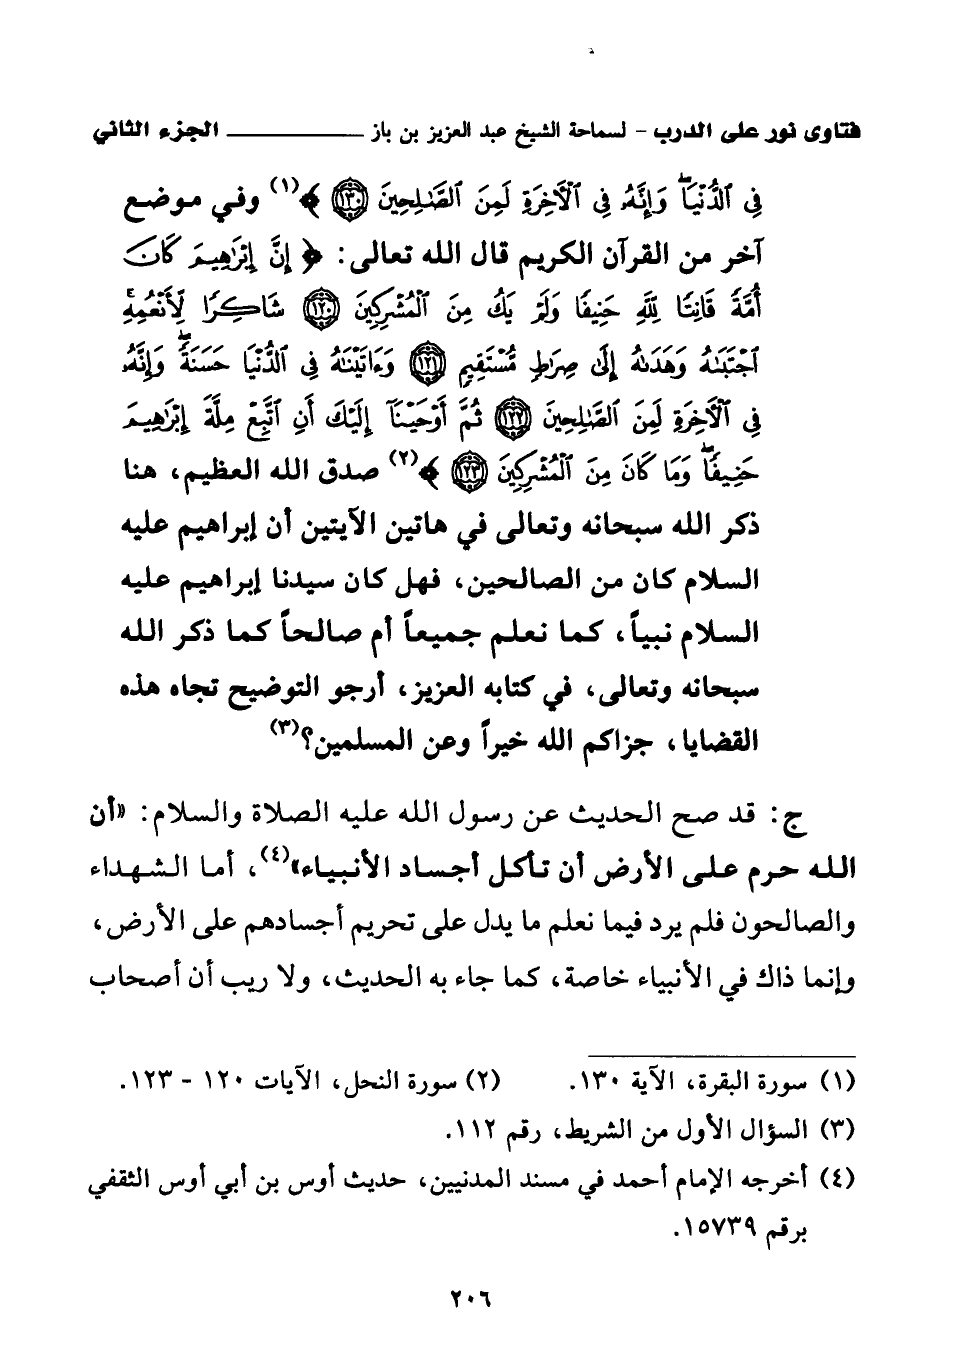 فتاوى نور على الدرب - لسماحة الشيخ عبد العزيز بن باز ــــــــــــ الجزء الثاني
فِى ٱلدُّنْيَاۖ وَإِنَّهُۥ فِى ٱلْأَخِرَةِ لَمِنَ ٱلصَّٰلِحِينَ ١٣٠ ﴾(١) وفي موضع
آخر من القرآن الكريم قال الله تعالى: ﴿ إِنَّ إِبْرَٰهِيمَ كَانَ
أُمَّةً قَانِتًا لِّلَّهِ حَنِيفًا وَلَمْ يَكُ مِنَ ٱلْمُشْرِكِينَ ١٢٠ شَاكِرًا لِّأَنْعُمِهِۚ
ٱجْتَبَىٰهُ وَهَدَىٰهُ إِلَىٰ صِرَٰطٍ مُّسْتَقِيمٍ ١٢١ وَءَاتَيْنَٰهُ فِى ٱلدُّنْيَا حَسَنَةًۖ وَإِنَّهُۥ
فِى ٱلْأَخِرَةِ لَمِنَ ٱلصَّٰلِحِينَ ١٢٢ ثُمَّ أَوْحَيْنَآ إِلَيْكَ أَنِ ٱتَّبِعْ مِلَّةَ إِبْرَٰهِيمَ
حَنِيفًاۖ وَمَا كَانَ مِنَ ٱلْمُشْرِكِينَ ١٢٣ ﴾(٢) صدق الله العظيم، هنا
ذكر الله سبحانه وتعالى في هاتين الآيتين أن إبراهيم عليه
السلام كان من الصالحين، فهل كان سيدنا إبراهيم عليه
السلام نبياً، كما نعلم جميعاً أم صالحاً كما ذكر الله
سبحانه وتعالى، في كتابه العزيز، أرجو التوضيح تجاه هذه
القضايا، جزاكم الله خيراً وعن المسلمين؟(٣)
ج: قد صح الحديث عن رسول الله عليه الصلاة والسلام: «أن
الله حرم على الأرض أن تأكل أجساد الأنبياء»(٤)، أما الشهداء
والصالحون فلم يرد فيما نعلم ما يدل على تحريم أجسادهم على الأرض،
وإنما ذاك في الأنبياء خاصة، كما جاء به الحديث، ولا ريب أن أصحاب
(١) سورة البقرة، الآية ١٣٠. (٢) سورة النحل، الآيات ١٢٠ - ١٢٣.
(٣) السؤال الأول من الشريط، رقم ١١٢.
(٤) أخرجه الإمام أحمد في مسند المدنيين، حديث أوس بن أبي أوس الثقفي
برقم ١٥٧٣٩.
٢٠٦